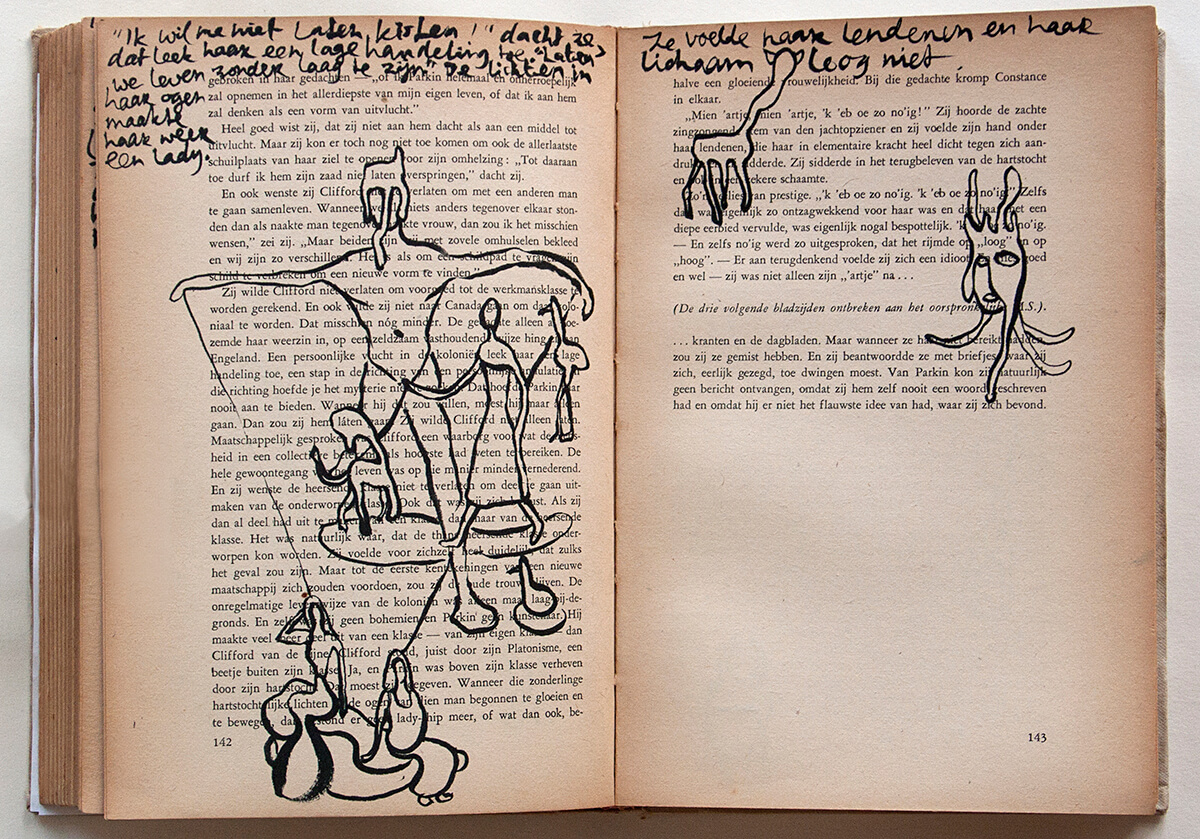 "Ik wil me niet laten kisten!" dacht ze
dat leek haar een lage handeling toe "laten
we leven zonder laag te zijn" De lichtjes in
haar ogen
maakte
haar weer
een lady.
gebroken in haar gedachten — „of ik Parkin helemaal en onherroepelijk
zal opnemen in het allerdiepste van mijn eigen leven, of dat ik aan hem
zal denken als een vorm van uitvlucht.”
Heel goed wist zij, dat zij niet aan hem dacht als aan een middel tot
uitvlucht. Maar zij kon er toch nog niet toe komen om ook de allerlaatste
schuilplaats van haar ziel te openen voor zijn omhelzing: „Tot daaraan
toe durf ik hem zijn zaad niet laten overspringen,” dacht zij.
En ook wenste zij Clifford niet te verlaten om met een anderen man
te gaan samenleven. Wanneer wij niets anders tegenover elkaar ston-
den dan als naakte man tegenover naakte vrouw, dan zou ik het misschien
wensen,” zei zij. „Maar beiden zijn wij met zovele omhulselen bekleed
en wij zijn zo verschillend. Het is als om een schildpad te vragen zijn
schild te verbreken om een nieuwe vorm te vinden.”
Zij wilde Clifford niet verlaten om voorgoed tot de werkmansklasse te
worden gerekend. En ook wilde zij niet naar Canada gaan om daar kolo-
niaal te worden. Dat misschien nóg minder. De gedachte alleen al
zemde haar weerzin in, op een zeldzaam vasthoudende wijze hing aan
Engeland. Een persoonlijke vlucht in de koloniën leek haar een lage
handeling toe, een stap in de richting van een
die richting hoefde je het mysterie niet te zoeken. Dat hoefde Parkin haar
nooit aan te bieden. Wanneer hij dat zou willen, moest hij maar alleen
gaan. Dan zou zij hem láten gaan. Zij wilde Clifford niet verlaten.
Maatschappelijk gesproken was Clifford een waarborg voor wat de mens-
heid in een collectieve betekenis als hoogste had weten te bereiken. De
hele gewoontegang van het leven was op die manier minder vernederend.
En zij wenste de heersende klasse niet te verlaten om deel te gaan uit-
maken van de onderworpen klasse. Ook dit was zij zich bewust. Als zij
dan al deel had uit te maken van een klasse, dan maar van de heersende
klasse. Het was natuurlijk waar, dat de thans heersende klasse onder-
worpen kon worden. Zij voelde voor zichzelf heel duidelijk, dat zulks
het geval zou zijn. Maar tot de eerste kentekeningen van een nieuwe
maatschappij zich zouden voordoen, zou zij de oude trouw blijven. De
onregelmatige levenswijze van de koloniën was alleen maar laag-bij-de-
gronds. En zelf was zij geen bohemien en Parkin geen kunstenaar. Hij
maakte veel meer deel uit van een klasse — van zijn eigen klasse — dan
Clifford van de zijne. Clifford stond, juist door zijn Platonisme, een
beetje buiten zijn klasse. Ja, en Parkin was boven zijn klasse verheven
door zijn hartstocht. Dat moest zij toegeven. Wanneer die zonderlinge
hartstochtelijke lichten in de ogen van dien man begonnen te gloeien en
te bewegen, dan bestond er geen ladyship meer, of wat dan ook, be-
142
Ze voelde haar lendenen en haar
lichaam loog niet.
halve een gloeiende vrouwelijkheid. Bij die gedachte kromp Constance
in elkaar.
„Mien 'artje, mien 'artje, 'k 'eb oe zo no'ig!” Zij hoorde de zachte
zingzongende stem van den jachtopziener en zij voelde zijn hand onder
haar lendenen, die haar in elementaire kracht heel dicht tegen zich aan-
drukte. Zij sidderde. Zij sidderde in het terugbeleven van de hartstocht
en ook in een zekere schaamte.
Zo'n verlies van prestige. „'k 'eb oe zo no'ig. 'k 'eb oe zo no'ig.” Zelfs
dat wat eigenlijk zo ontzagwekkend voor haar was en dat haar met een
diepe eerbied vervulde, was eigenlijk nogal bespottelijk. 'k no'ig.
— En zelfs no'ig werd zo uitgesproken, dat het rijmde op „loog” en op
„hoog”. — Er aan terugdenkend voelde zij zich een idioot. En niet goed
en wel — zij was niet alleen zijn „'artje” na . . .
(De drie volgende bladzijden ontbreken aan het oorspronkelijke M.S.).
. . . kranten en de dagbladen. Maar wanneer ze haar niet bereikt hadden,
zou zij ze gemist hebben. En zij beantwoordde ze met briefjes, waar zij
zich, eerlijk gezegd, toe dwingen moest. Van Parkin kon zij natuurlijk
geen bericht ontvangen, omdat zij hem zelf nooit een woord geschreven
had en omdat hij er niet het flauwste idee van had, waar zij zich bevond.
143